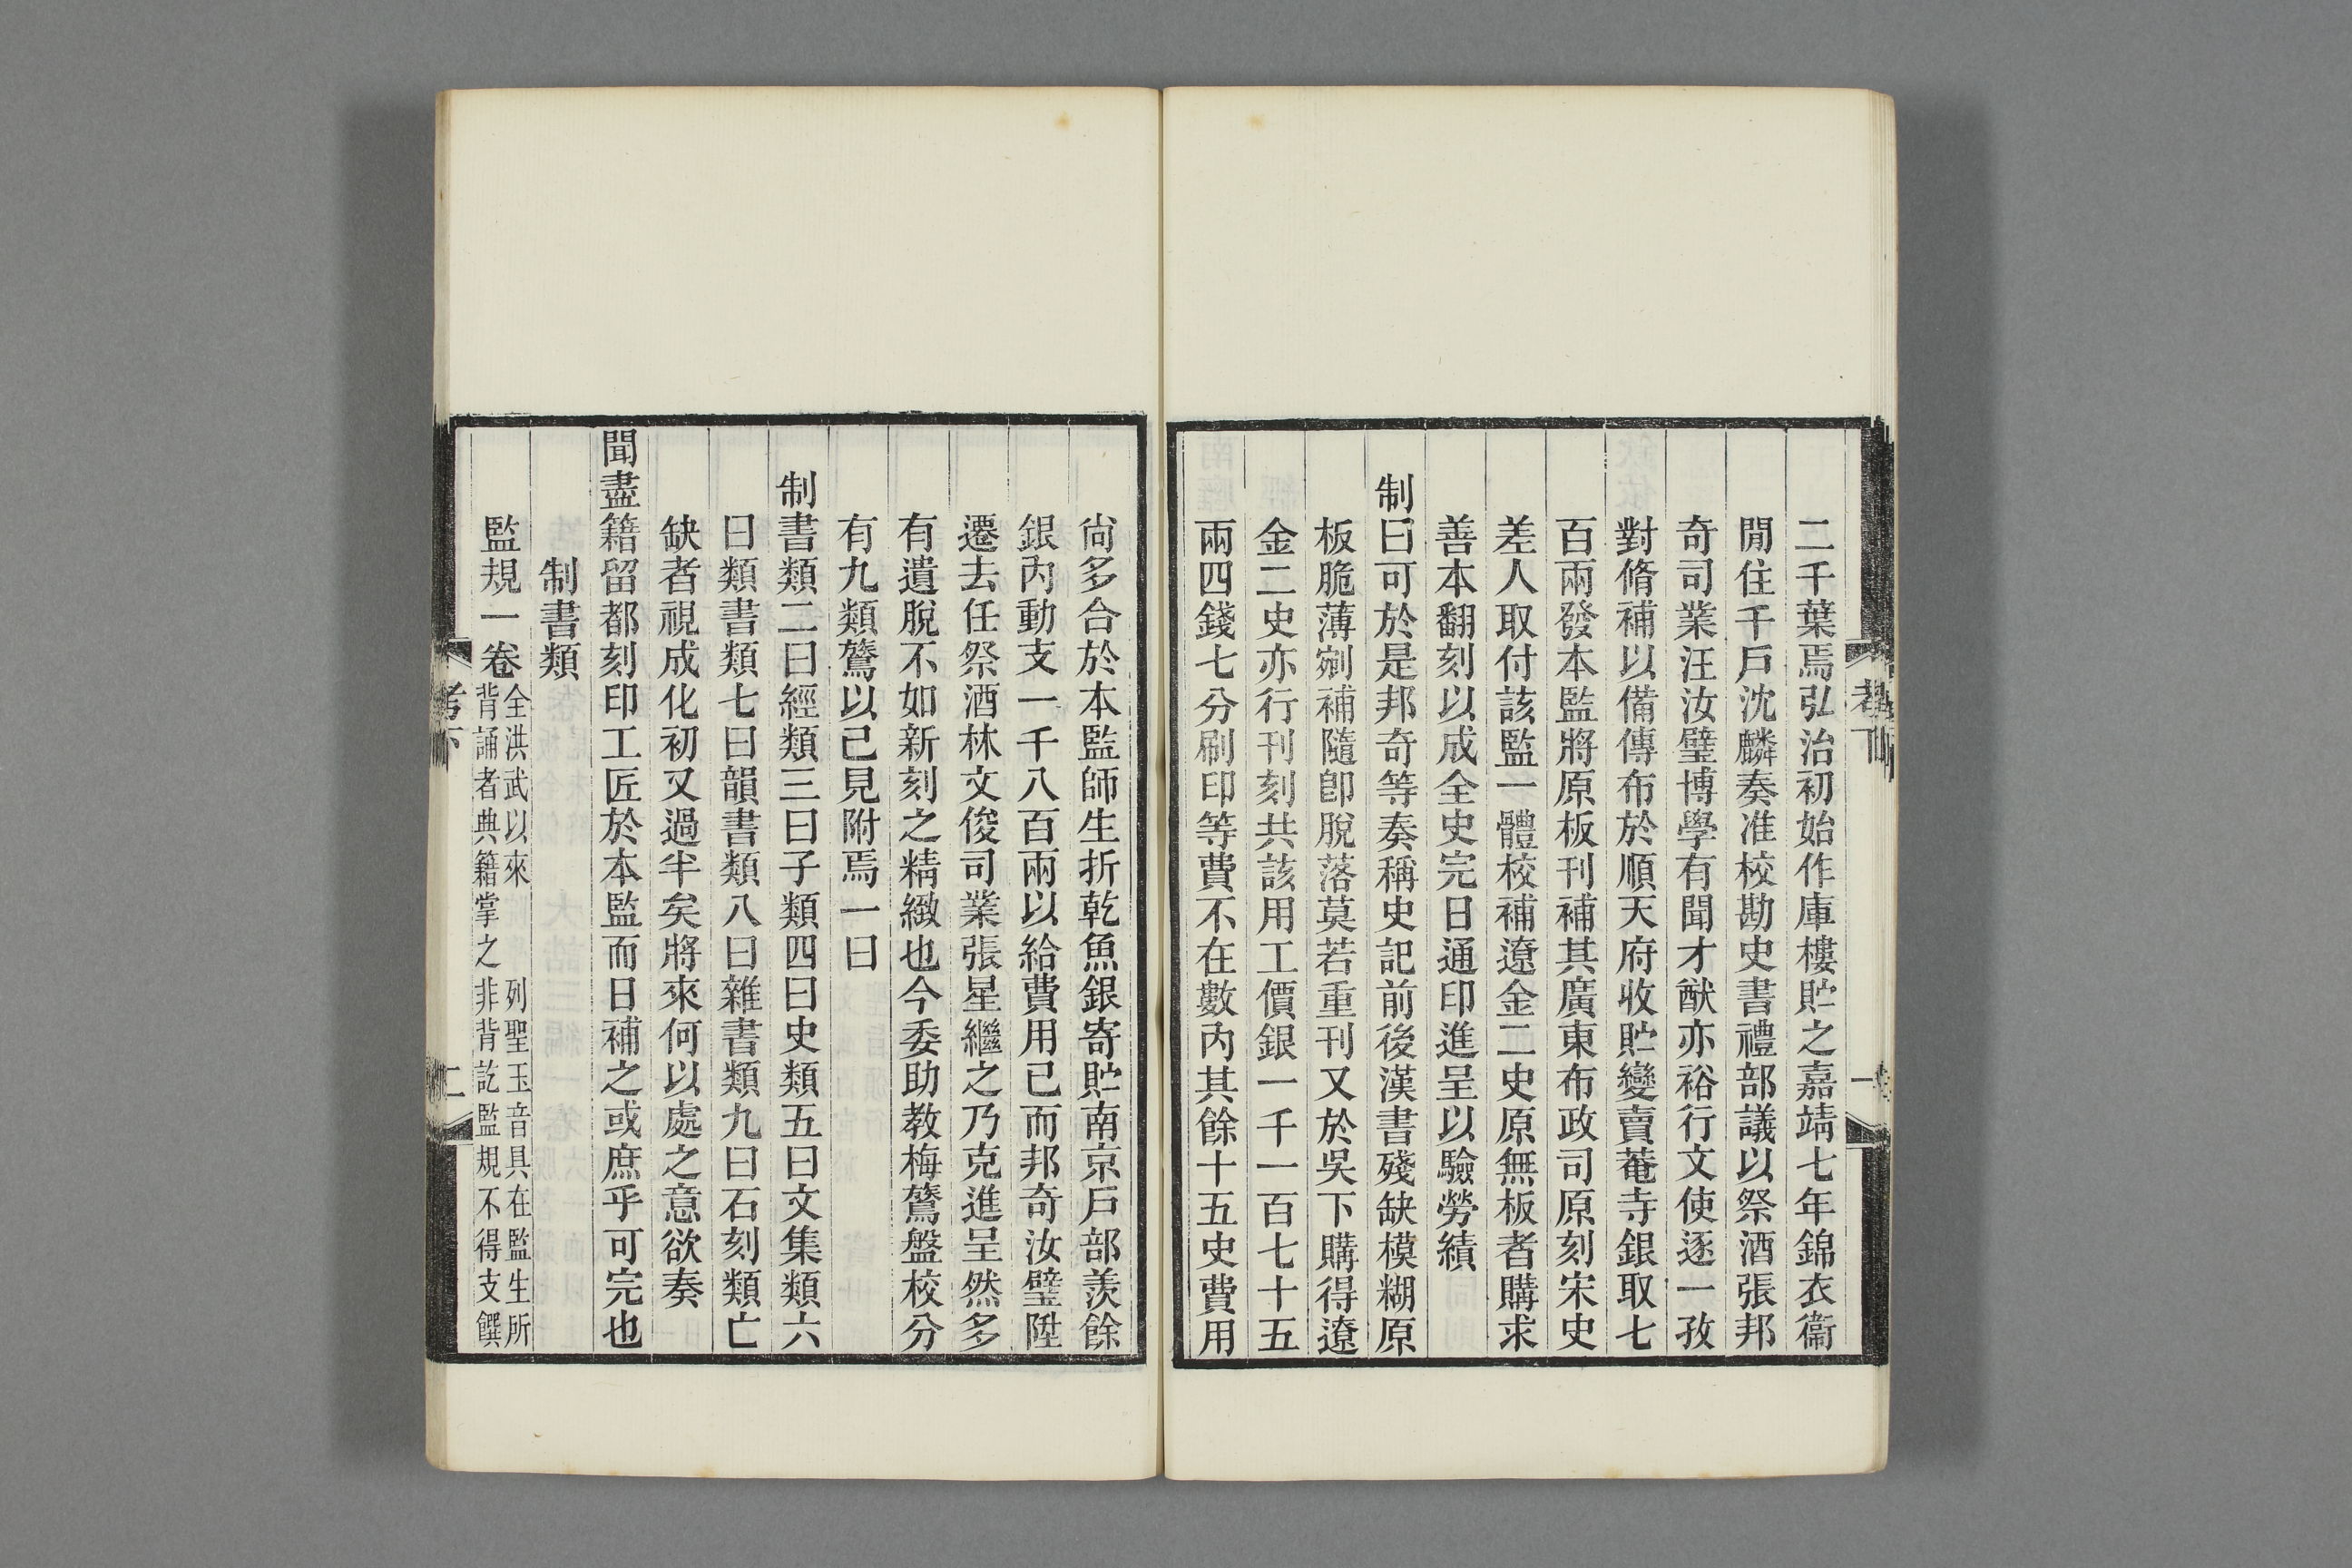 二千葉焉弘治初始作庫樓貯之嘉靖七年錦衣衞
閒住千戶沈麟奏准校勘史書禮部議以祭酒張邦
奇司業汪汝璧博學有聞才猷亦裕行文使逐一孜
對脩補以備傳布於順天府收貯變賣菴寺銀取七
百兩發本監將原板刊補其廣東布政司原刻宋史
差人取付該監一體校補遼金二史原無板者購求
善本翻刻以成全史完日通印進呈以驗勞績
制曰可於是邦奇等奏稱史記前後漢書殘缺模糊原
板脆薄剜補隨卽脫落莫若重刊又於吳下購得遼
金二史亦行刊刻共該用工價銀一千一百七十五
兩四錢七分刷印等費不在數內其餘十五史費用
尙多合於本監師生折乾魚銀寄貯南京戶部羨餘
銀內動支一千八百兩以給費用已而邦奇汝璧陞
遷去任祭酒林文俊司業張星繼之乃克進呈然多
有遺脫不如新刻之精緻也今委助教梅鷟盤校分
有九類鷟以己見附焉一曰
制書類二曰經類三曰子類四曰史類五曰文集類六
曰類書類七曰韻書類八曰雜書類九曰石刻類亡
缺者視成化初又過半矣將來何以處之意欲奏
聞盡籍留都刻印工匠於本監而日補之或庶乎可完也
制書類
監規一卷 全洪武以來 列聖玉音具在監生所
背誦者典籍掌之 非背訖監規不得支饌
考下
二